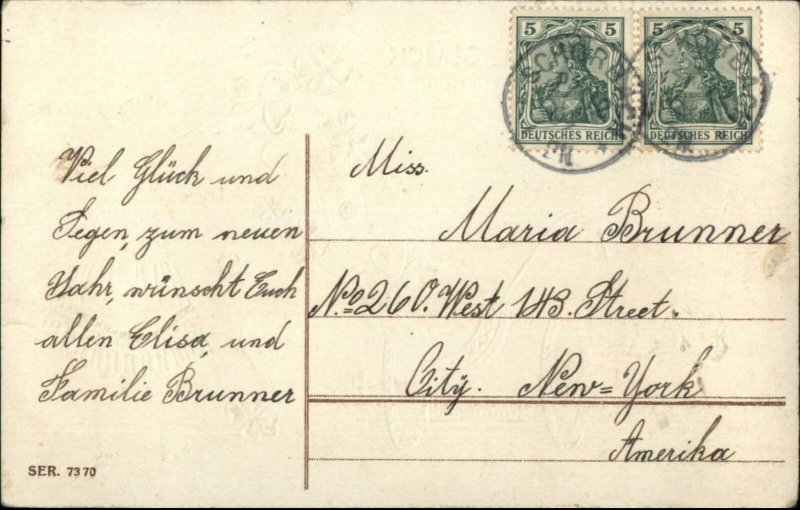 5 5 5 5
DEUTSCHES REICH DEUTSCHES REICH
Viel Glück und
Segen, zum neuen
Jahr, wünscht Euch
allen Elisa, und
Familie Brunner
Miss.
Maria Brunner
No. 260. West 143. Street.
City. New=York
Amerika
SER. 7370